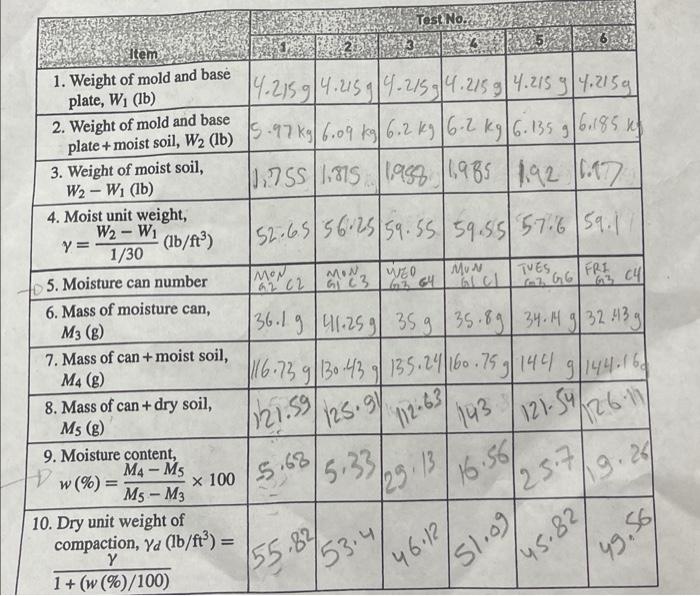 Test No.
Item 1 2 3 4 5 6
1. Weight of mold and base
plate, W1 (lb) 4.215g 4.215g 4.215g 4.215g 4.215g 4.215g
2. Weight of mold and base
plate + moist soil, W2 (lb) 5.97 kg 6.09 kg 6.2 kg 6.2 kg 6.135 g 6.185 kg
3. Weight of moist soil,
W2 – W1 (lb) 1.755 1.875 1.985 1.92 1.97
4. Moist unit weight,
γ = W2 – W1 / 1/30 (lb/ft³) 52.65 56.25 59.55 59.55 57.6 59.1
5. Moisture can number MON G2 C2 MON G1 C3 WED G3 G4 MON G1 C1 TUES G6 FRI G3 C4
6. Mass of moisture can,
M3 (g) 36.1 g 41.25g 35 g 35.8g 34.14 g 32.43g
7. Mass of can + moist soil,
M4 (g) 116.73 g 130.43 g 135.24 160.75 g 144 g 144.16g
8. Mass of can + dry soil,
M5 (g) 121.59 125.91 112.63 143 121.54 126.11
9. Moisture content,
w (%) = M4 – M5 / M5 – M3 × 100 5.68 5.33 29.13 16.56 25.7 19.26
10. Dry unit weight of
compaction, γd (lb/ft³) =
γ / 1 + (w (%)/100) 55.82 53.4 46.12 51.09 45.82 49.56